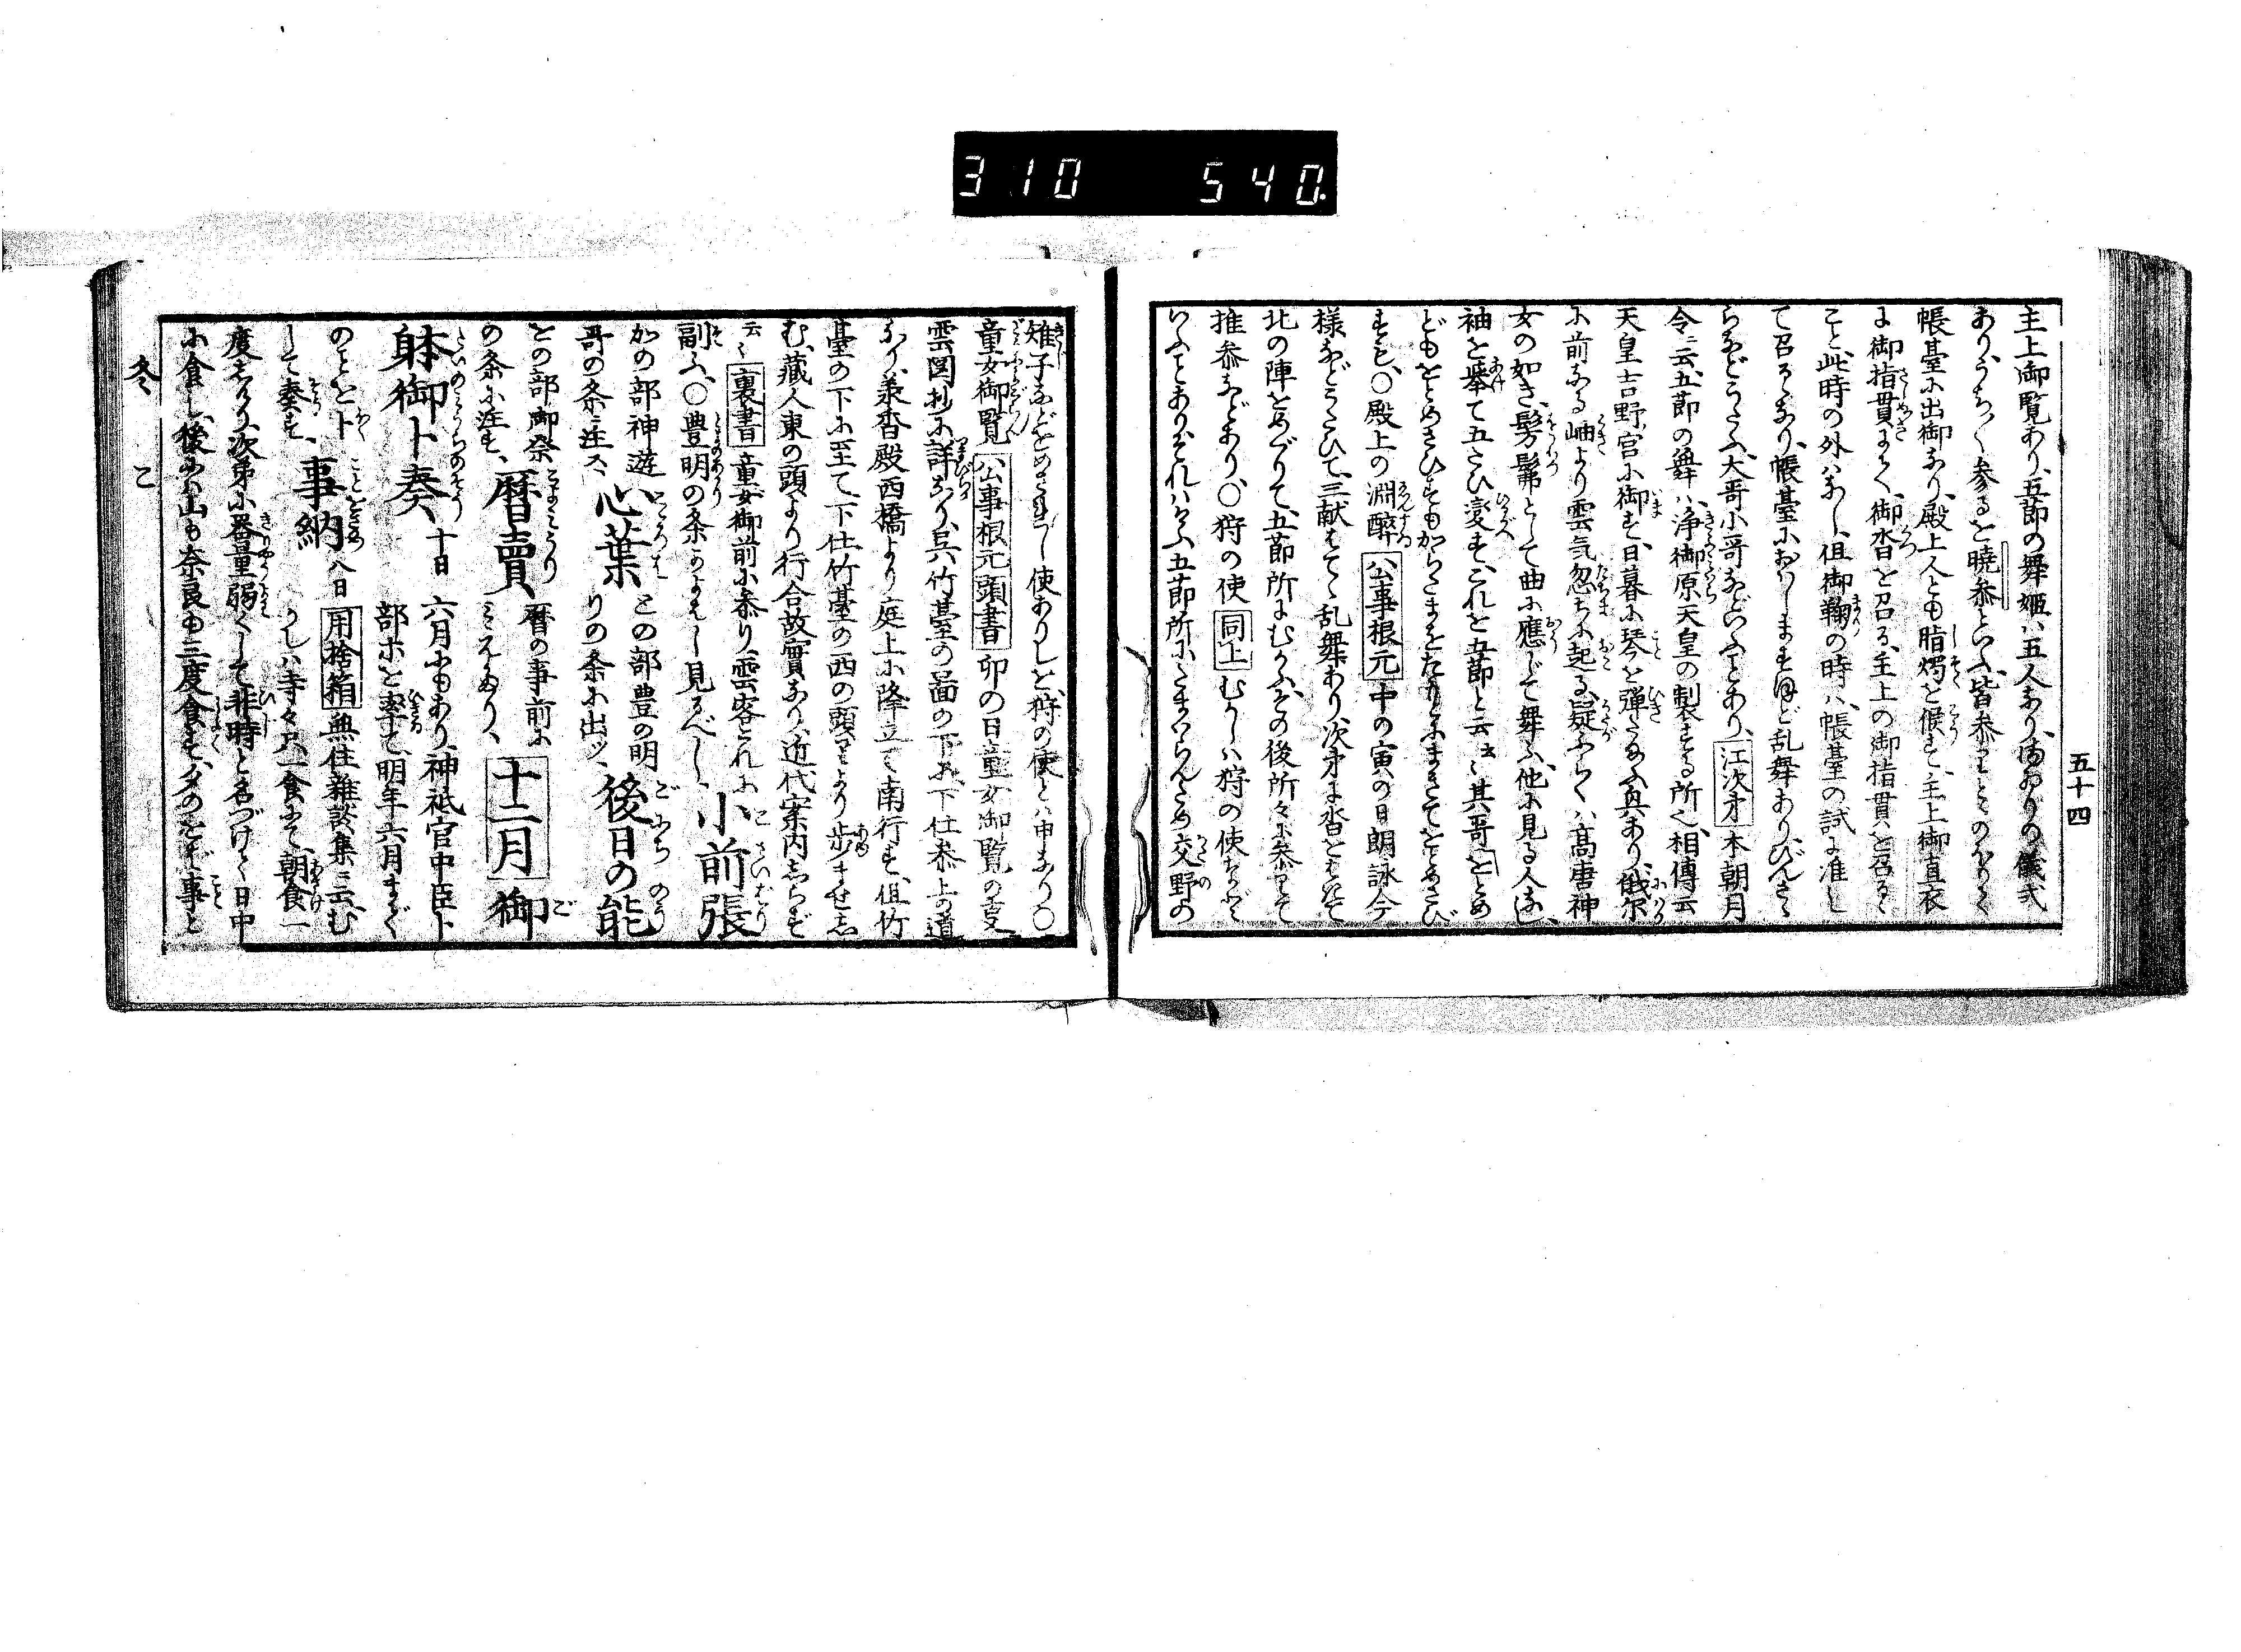 310 540.
五十四
主上御覧あり、五節の舞姫ハ五人あり、
あり、うち〳〵参るを暁参といふ、皆参
帳臺に出御なり、殿上人とも脂燭を候ず、主上御直衣
に御指貫、御沓を召る、主上の御指貫を召るゝ
こと、此時の外ハなし、但御鞠の時ハ、帳臺の試に准じ
て召るゝなり、帳臺におハします ほど乱舞あり、びんさゝ
らなどうたふ、大哥小哥などいふことあり、江次第 本朝月
令ニ云、五節の舞ハ、浄御原天皇の製する所也、相傳云
天皇吉野宮に御す、日暮に琴を弾たまふ興あり、俄尓
に前なる岫より雲気忽ちに起る、疑ふらくハ高唐神
女の如き、髣髴として曲に應じて舞ふ、他に見る人なし、
袖を挙て五たひ変ず、これを五節と云云々其哥 をとめ
どもをとめさひすもからたまをたもとにまきてをとめさび
すも、〇殿上の淵醉 公事根元 中の寅の日朗詠今
様などうたひて、三献はてゝ乱舞あり、次第に沓をはきて
北の陣をめぐりて、五節所にむかふ、その後所々に参りて
推参などあり、〇狩の使 同上 むかしハ狩の使などゝ
いふことありそれハけふ五節所にたまハらんため交野の
雉子などをめされし使ありしを、狩の使とハ申なり〇
童女御覧 公事根元頭書 卯の日童女御覧の事
雲図抄に詳なり、呉竹臺の面の下に、下仕参上の道
あり、承香殿西橋より庭上に降立て南行す、但竹
臺の下に至て、下仕竹臺の西の頭より歩ませし
む、藏人東の頭より行合故實なり、近代案内しらず
云々 裏書 童女御前に参り、雲客これに
副ふ、〇豊明の条 見るべし、 小前張
かの部神遊 哥の条ニ注ス、 心葉 との部豊の明 りの条に出ツ、 後日の能
との部御祭 の条に注す、 暦賣 暦の事前に みえたり、 十二月 御
躰御卜奏 十日 六月にもあり、神祇官中臣卜 部ホを率て、明年六月まで
のことを卜 して奏す、 事納 八日 用捨箱 無住雑談集ニ云、む かしハ寺々只一食にて、朝食一
度しけり、次第に器量弱くして非時と名づけて日中
に食し、後にハ山も奈良も三度食す、夕のをバ事と
冬 こ